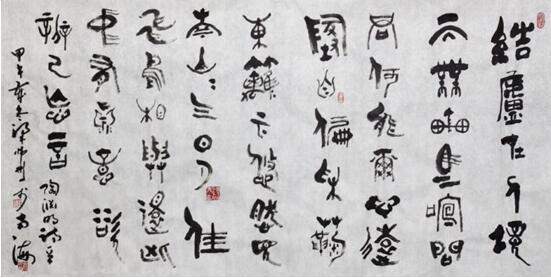 結廬在人境
而無車馬喧問
君何能爾心遠
地自偏采菊
東籬下悠然見
南山〻气日夕佳
飛鳥相與還此
中有真意欲
辨已忘言 陶淵明詩
甲午 上海